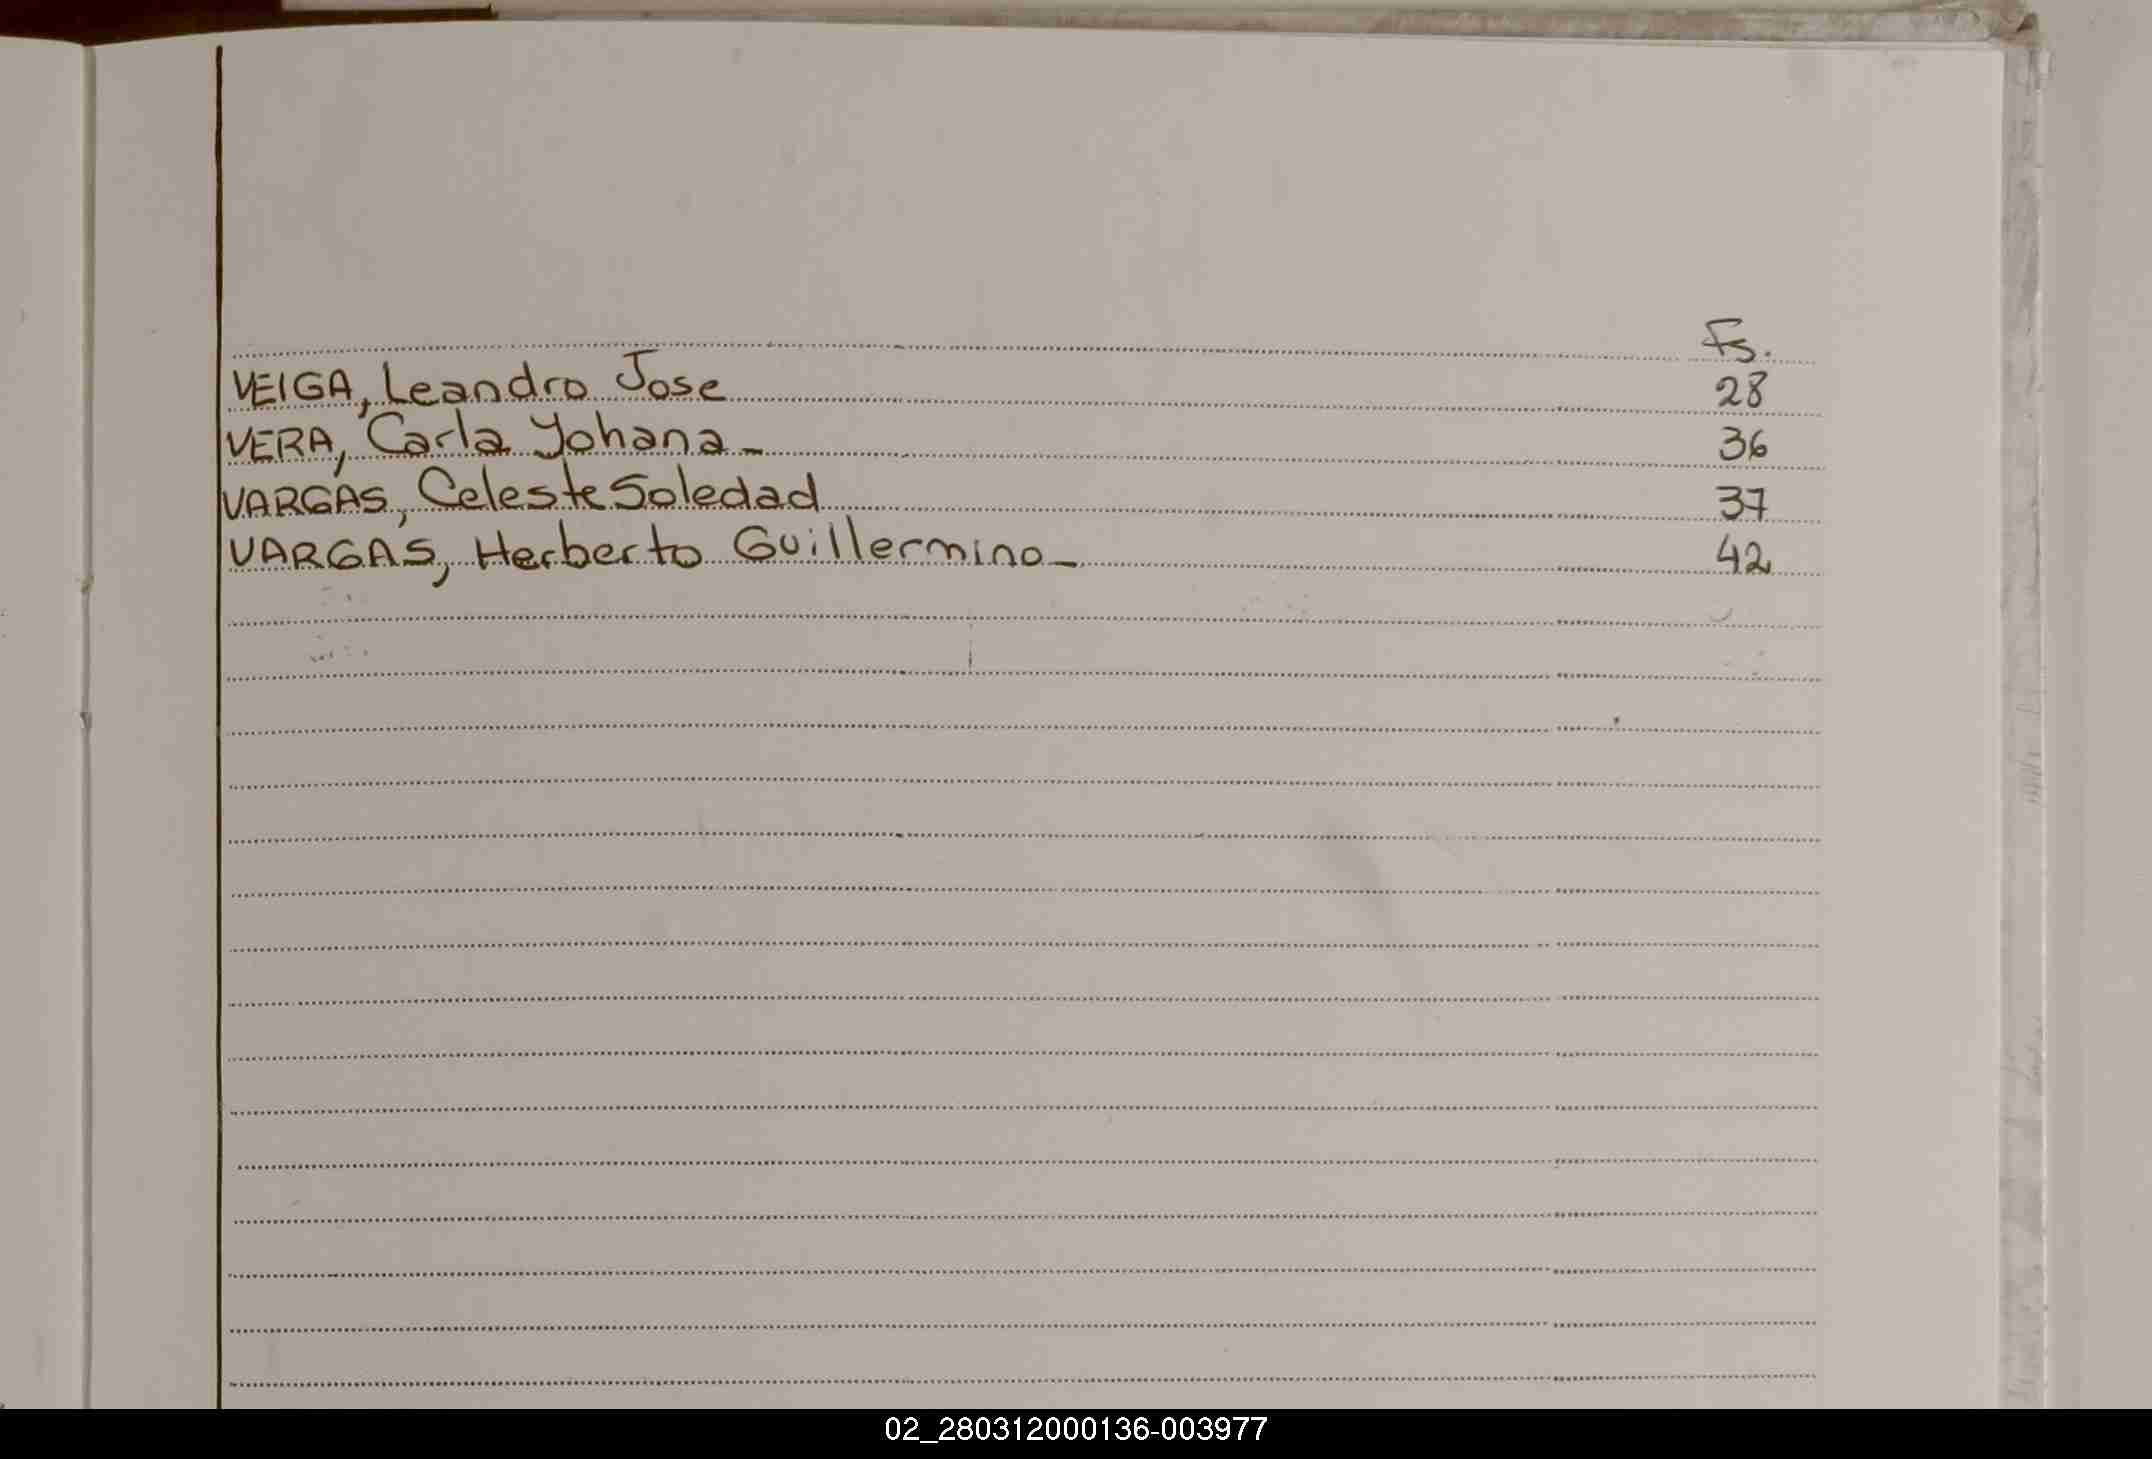 Fs.
VEIGA, Leandro Jose 28
VERA, Carla Yohana - 36
VARGAS, Celeste Soledad 37
VARGAS, Herberto Guillermino - 42
02_280312000136-003977